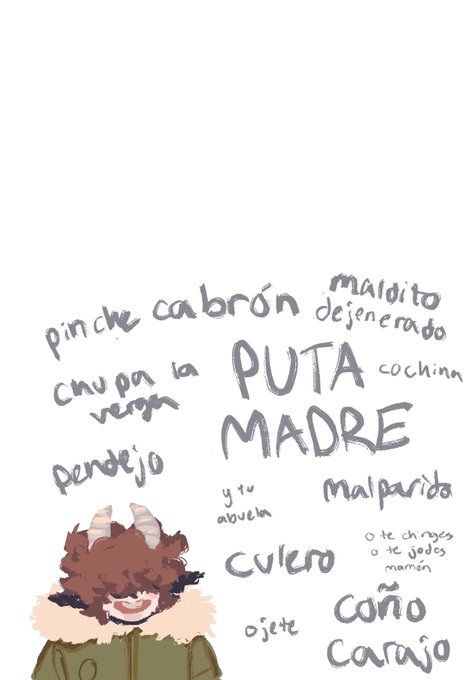 pinche
cabrón
maldito
dejenerado
chupa la
verga
PUTA
MADRE
cochina
pendejo
y tu
abuela
malparido
culero
o te chinges
o te jodes
mamón
ojete
coño
carajo